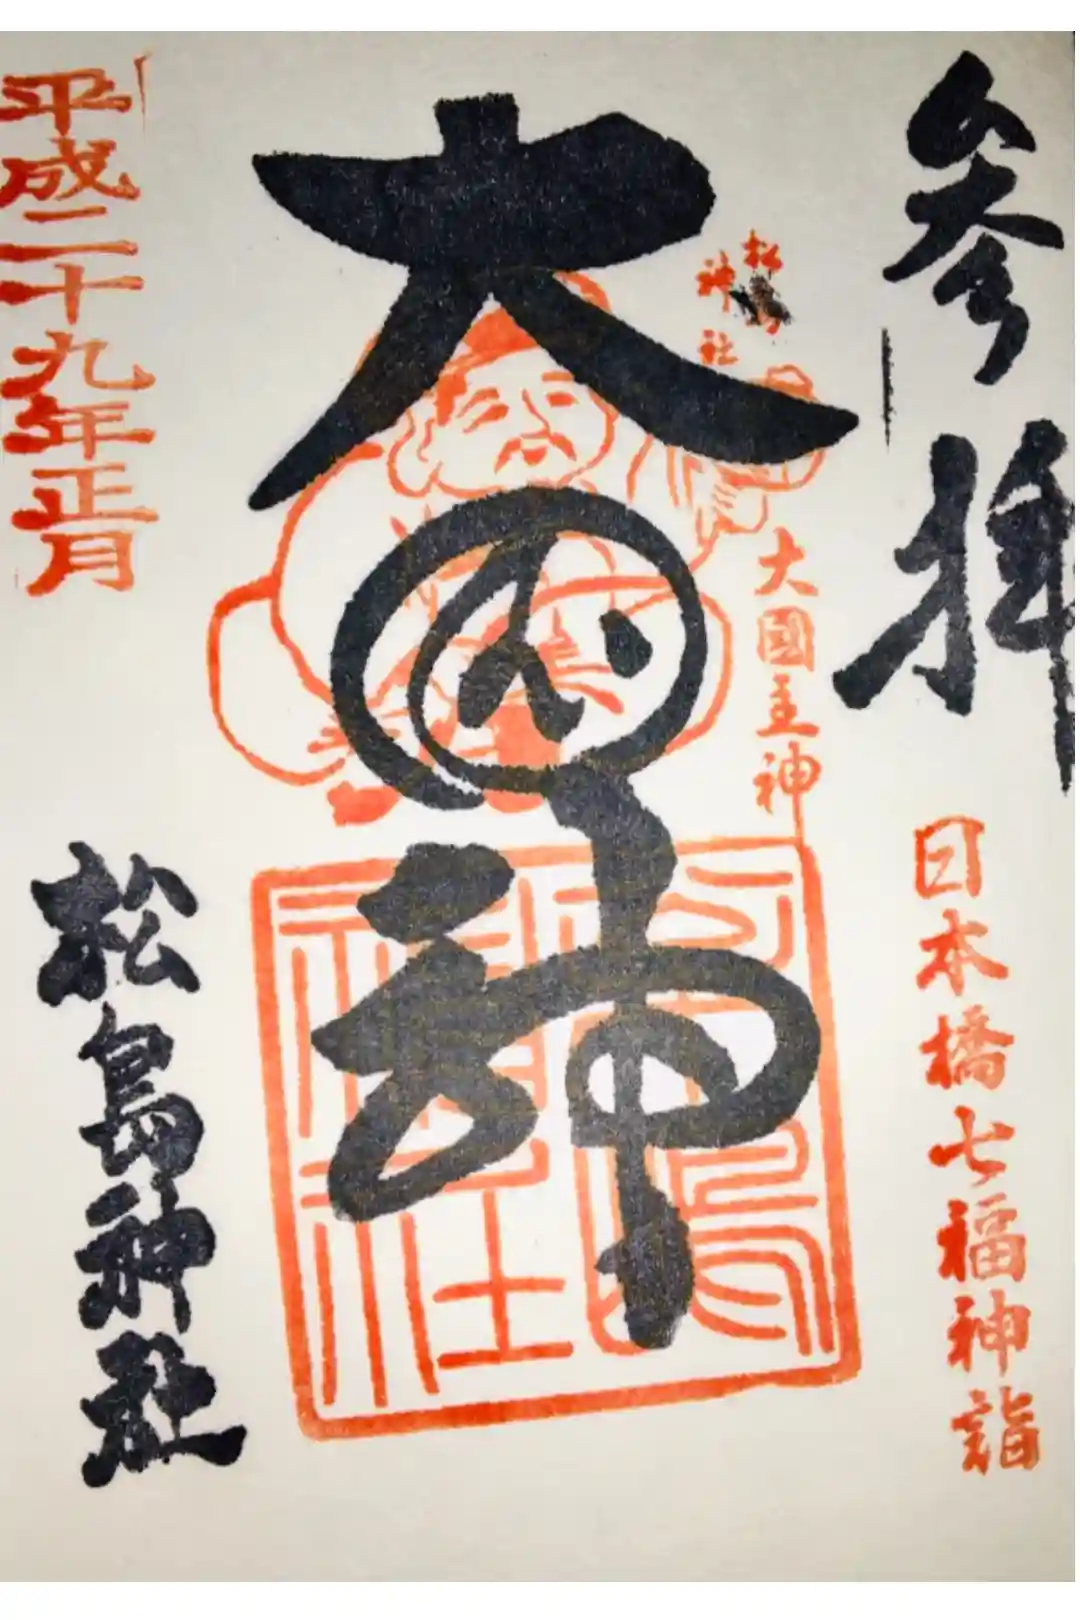 参拝
日本橋七福神詣
松島
神社
大國主神
大国神
松島神社
平成二十九年正月